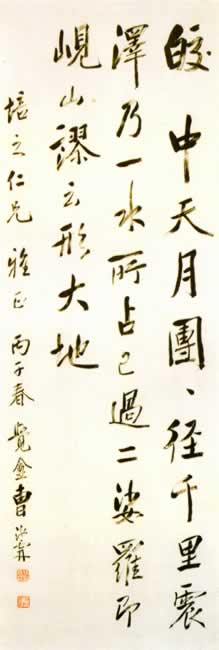 皎中天月團、径千里震
澤乃一水所占已過二娑羅即
峴山謬云形大地
培之仁兄雅正丙子春覺盦曹汝霖